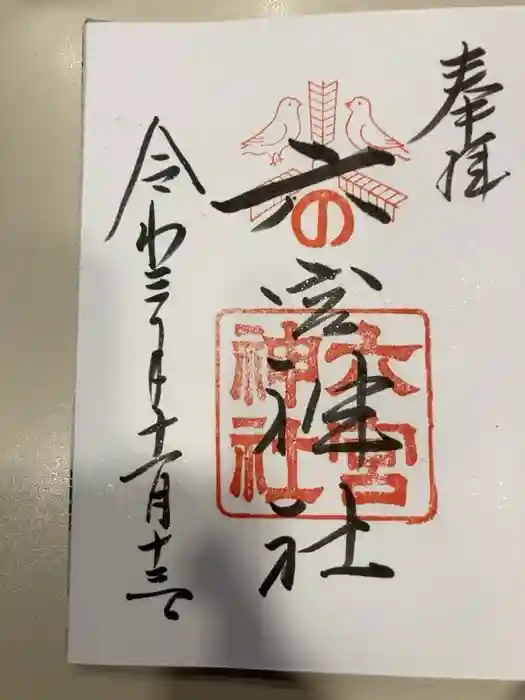 奉拝
六の宮神社
六宮神社
令和三年十一月十三日